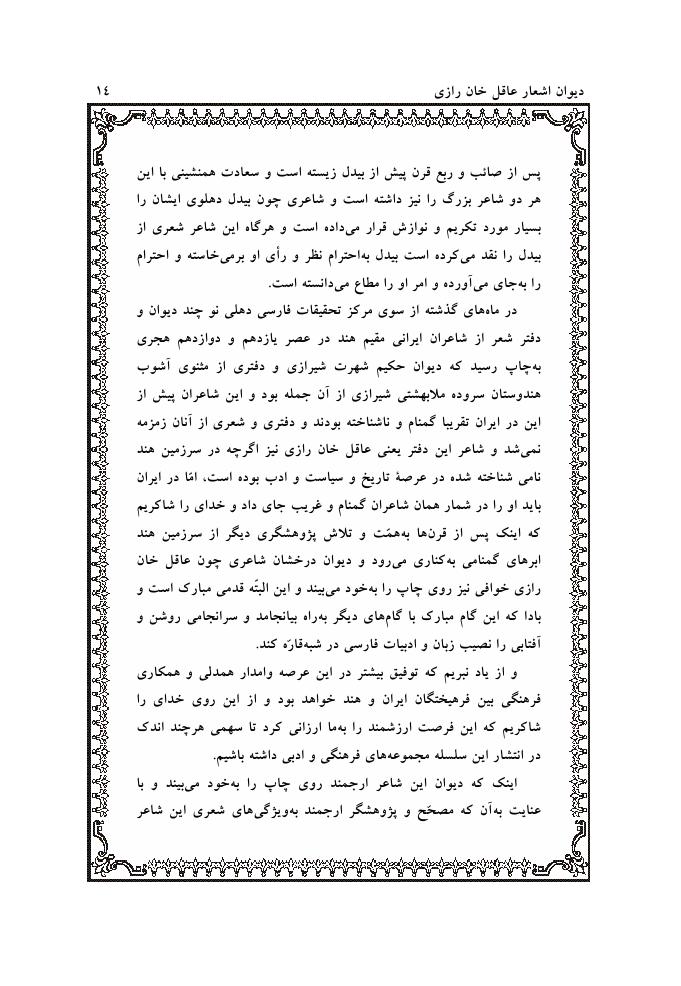 دیوان اشعار عاقل خان رازی
١٤
پس از صائب و ربع قرن پیش از بیدل زیسته است و سعادت همنشینی با این
هر دو شاعر بزرگ را نیز داشته است و شاعری چون بیدل دهلوی ایشان را
بسیار مورد تکریم و نوازش قرار می‌داده است و هرگاه این شاعر شعری از
بیدل را نقد می‌کرده است بیدل به‌احترام نظر و رأی او برمی‌خاسته و احترام
را به‌جای می‌آورده و امر او را مطاع می‌دانسته است.
در ماه‌های گذشته از سوی مرکز تحقیقات فارسی دهلی نو چند دیوان و
دفتر شعر از شاعران ایرانی مقیم هند در عصر یازدهم و دوازدهم هجری
به‌چاپ رسید که دیوان حکیم شهرت شیرازی و دفتری از مثنوی آشوب
هندوستان سروده ملابهشتی شیرازی از آن جمله بود و این شاعران پیش از
این در ایران تقریبا گمنام و ناشناخته بودند و دفتری و شعری از آنان زمزمه
نمی‌شد و شاعر این دفتر یعنی عاقل خان رازی نیز اگرچه در سرزمین هند
نامی شناخته شده در عرصۀ تاریخ و سیاست و ادب بوده است، امّا در ایران
باید او را در شمار همان شاعران گمنام و غریب جای داد و خدای را شاکریم
که اینک پس از قرن‌ها به‌همّت و تلاش پژوهشگری دیگر از سرزمین هند
ابرهای گمنامی به‌کناری می‌رود و دیوان درخشان شاعری چون عاقل خان
رازی خوافی نیز روی چاپ را به‌خود می‌بیند و این البتّه قدمی مبارک است و
بادا که این گام مبارک با گام‌های دیگر به‌راه بیانجامد و سرانجامی روشن و
آفتابی را نصیب زبان و ادبیات فارسی در شبه‌قارّه کند.
و از یاد نبریم که توفیق بیشتر در این عرصه وامدار همدلی و همکاری
فرهنگی بین فرهیختگان ایران و هند خواهد بود و از این روی خدای را
شاکریم که این فرصت ارزشمند را به‌ما ارزانی کرد تا سهمی هرچند اندک
در انتشار این سلسله مجموعه‌های فرهنگی و ادبی داشته باشیم.
اینک که دیوان این شاعر ارجمند روی چاپ را به‌خود می‌بیند و با
عنایت به‌آن که مصحّح و پژوهشگر ارجمند به‌ویژگی‌های شعری این شاعر